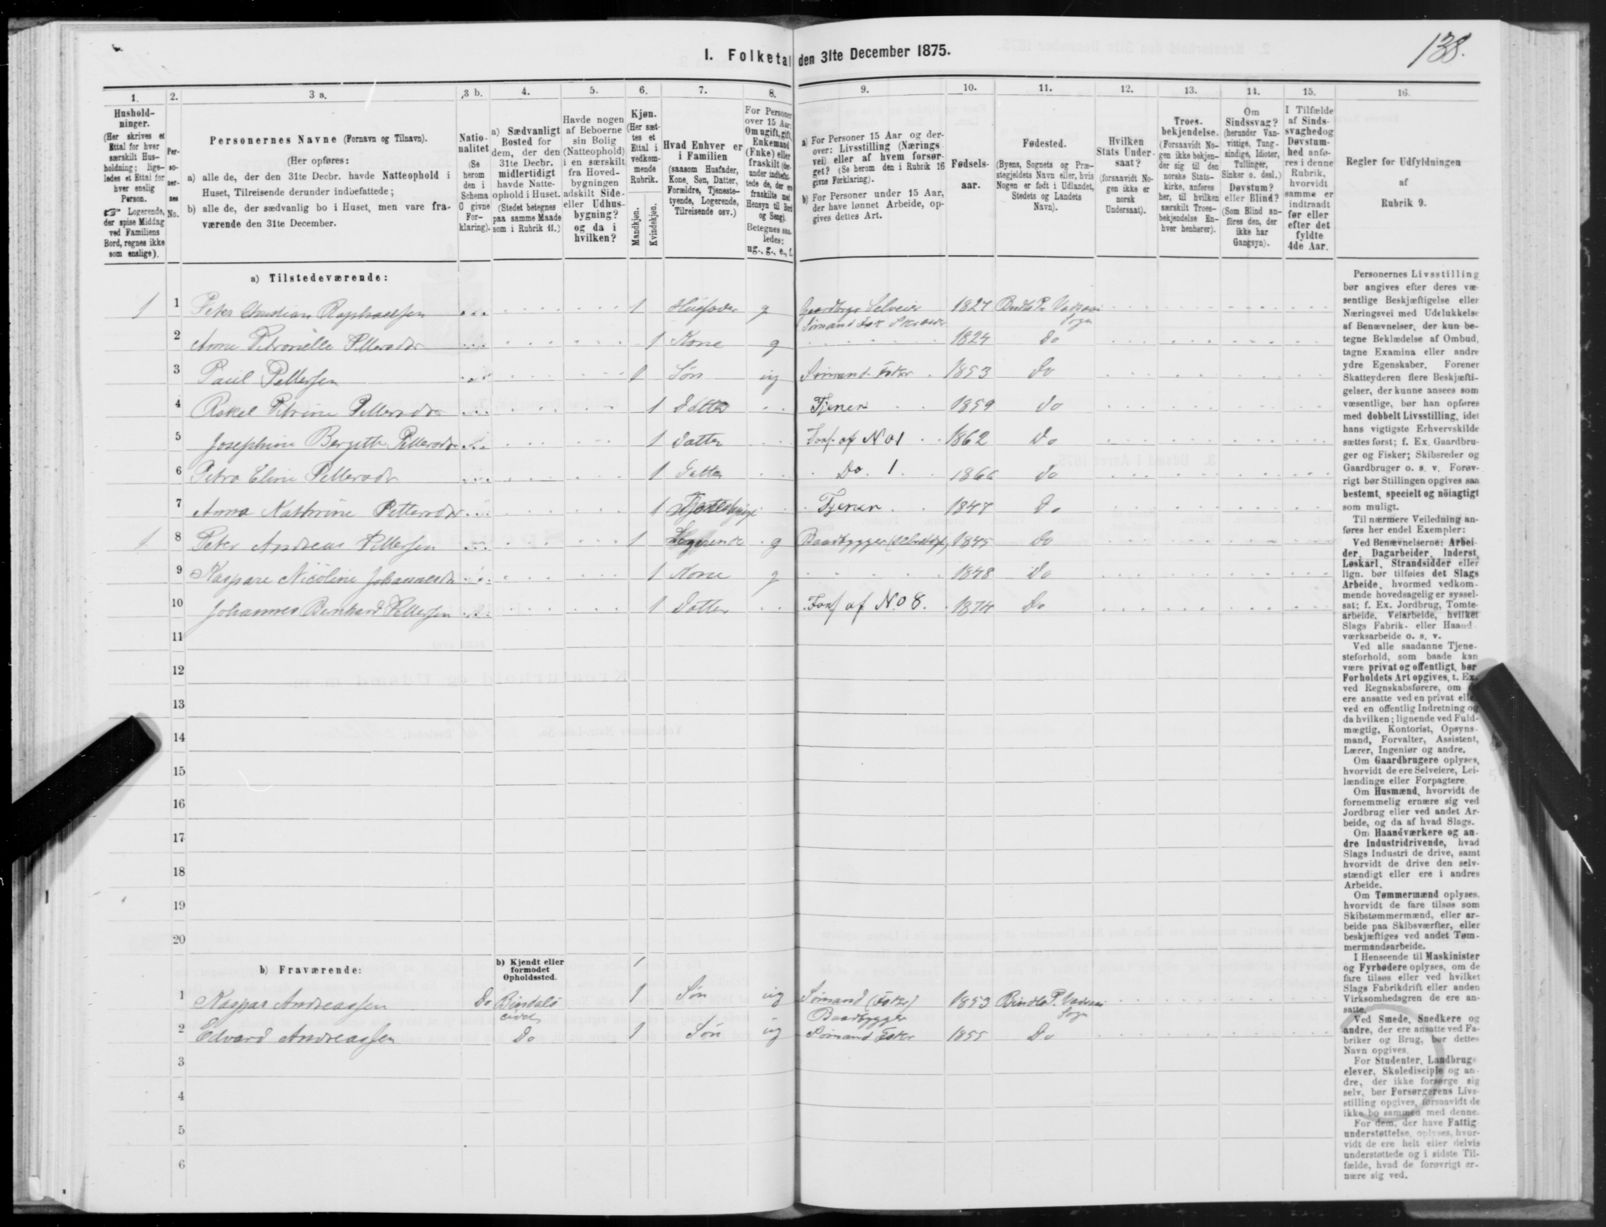 I. Folketal den 31te December 1875.
138.
1.
2.
3 a.
3 b.
4.
5.
6.
7.
8.
9.
10.
11.
12.
13.
14.
15.
16.
Hushold-
ninger.
(Her skrives et
Ettal for hver
særskilt Hus-
holdning; lige-
ledes et Ettal for
hver enslig
Person.
☞ Logerende,
der spise Middag
ved Familiens
Bord, regnes ikke
som enslige).
Per-
so-
ner-
nes
No.
Personernes Navne (Fornavn og Tilnavn).
(Her opføres:
a) alle de, der den 31te Decbr. havde Natteophold i
Huset, Tilreisende derunder indbefattede;
b) alle de, der sædvanlig bo i Huset, men vare fra-
værende den 31te December.
Natio-
nalitet
(Se
herom
den i
Schema
O givne
For-
klaring).
a) Sædvanligt
Bosted for
dem, der den
31te Decbr.
midlertidigt
havde Natte-
ophold i Huset.
(Stedet betegnes
paa samme Maade
som i Rubrik 11.)
Havde nogen
af Beboerne
sin Bolig
(Natteophold)
i en særskilt
fra Hoved-
bygningen
adskilt Side-
eller Udhus-
bygning?
og da i
hvilken?
Kjøn.
(Her sæt-
tes et
Ettal i
vedkom-
mende
Rubrik.
Mandkjøn.
Kvindekjøn.
Hvad Enhver er
i Familien
(saasom Husfader,
Kone, Søn, Datter,
Forældre, Tjeneste-
tyende, Logerende,
Tilreisende osv.)
For Personer
over 15 Aar:
Om ugift, gift,
Enkemand
(Enke) eller
fraskilt
Betegnes saa-
ledes:
ug., g., e., f.
a) For Personer 15 Aar og der-
over: Livsstilling (Nærings-
vei) eller af hvem forsør-
get? (Se herom den i Rubrik 16
givne Forklaring).
b) For Personer under 15 Aar,
der have lønnet Arbeide, op-
gives dettes Art.
Fødsels-
aar.
Fødested.
(Byens, Sognets og Præ-
stegjeldets Navn eller, hvis
Nogen er født i Udlandet,
Stedets og Landets
Navn).
Hvilken
Stats Under-
saat?
(forsaavidt No-
gen ikke er
norsk
Undersaat).
Troes-
bekjendelse.
(Forsaavidt No-
gen ikke bekjen-
der sig til den
norske Stats-
kirke, anføres
her, til hvilken
særskilt Troes-
bekjendelse En-
hver henhører).
Om
Sindssvag?
(herunder Van-
vittige, Tung-
sindige, Idioter,
Tullinger,
Sinker o. desl.)
Døvstum?
eller Blind?
(Som Blind an-
føres den, der
ikke har
Gangsyn).
I Tilfælde
af Sinds-
svaghed og
Døvstum-
hed anfø-
res i denne
Rubrik,
hvorvidt
samme er
indtraadt
før eller
efter det
fyldte
4de Aar.
Regler for Udfyldningen
af
Rubrik 9.
a) Tilstedeværende:
1 1 Peter Christian Raphaelsen 1 Husfader g Gaardbrger Selveier 1827 Bindals P. Vadsaas Sogn
Sømand Fisk
2 Anne Petronille Pettersdr 1 Kone g 1824 Do
3 Paul Pettersen 1 Søn ug Sømand Fisker 1853 Do
4 Rakel Petrine Pettersdr 1 Datter Tjener 1859 Do
5 Josephine Bergitte Pettersdr 1 Datter Fors. af No 1 1862 Do
6 Petra Eline Pettersdr 1 Datter Do 1 1866 Do
7 Anna Kathrine Pettersdr 1 Tjener 1847 Do
1 8 Peter Andreas Pettersen 1 Logerende g Baadbygger 1845 Do
9 Kaspare Nicoline Johannesdr 1 Kone g 1848 Do
10 Johannes Bernhard Pettersen 1 Datter Fors. af No 8. 1874 Do
11
12
13
14
15
16
17
18
19
20
b) Fraværende:
b) Kjendt eller
formodet
Opholdssted.
1 Kaspar Andreassen Do Bindals 1 Søn ug Sømand (Fisker) 1853 Bindals P. Vadsaas Sogn
Baadbygger
2 Edvard Andreassen Do 1 Søn ug Sømand Fisker 1855 Do
3
4
5
6
Personernes Livsstilling
bør angives efter deres væ-
sentlige Beskjæftigelse eller
Næringsvei med Udelukkelse
af Benævnelser, der kun be-
tegne Beklædelse af Ombud,
tagne Examina eller andre
ydre Egenskaber, Forener
Skatteyderen flere Beskjæfti-
gelser, der kunne ansees som
væsentlige, bør han opføres
med dobbelt Livsstilling, idet
hans vigtigste Erhvervskilde
sættes først; f. Ex. Gaardbru-
ger og Fisker; Skibsreder og
Gaardbruger o. s. v. Forøv-
rigt bør Stillingen opgives saa
bestemt, specielt og nöiagtigt
som muligt.
Til nærmere Veiledning an-
føres her endel Exempler:
Ved Benævnelserne: Arbei-
der, Dagarbeider, Inderst,
Løskarl, Strandsidder eller
lign. bør tilføies det Slags
Arbeide, hvormed vedkom-
mende hovedsagelig er syssel-
sat; f. Ex. Jordbrug, Tomte-
arbeide, Veiarbeide, hvilket
Slags Fabrik- eller Haand-
værksarbeide o. s. v.
Ved alle saadanne Tjene-
steforhold, som baade kan
være privat og offentligt, bør
Forholdets Art opgives, t. Ex.
ved Regnskabsførere, om
ere ansatte ved en privat eller
ved en offentlig Indretning og
da hvilken; lignende ved Fuld-
mægtig, Kontorist, Opsyns-
mand, Forvalter, Assistent,
Lærer, Ingeniør og andre.
Om Gaardbrugere oplyses,
hvorvidt de ere Selveiere, Lei-
lændinge eller Forpagtere.
Om Husmænd, hvorvidt de
fornemmelig ernære sig ved
Jordbrug eller ved andet Ar-
beide, og da af hvad Slags.
Om Haandværkere og an-
dre Industridrivende, hvad
Slags Industri de drive, samt
hvorvidt de drive den selv-
stændigt eller ere i andres
Arbeide.
Om Tømmermænd oplyses,
hvorvidt de fare tilsøs som
Skibstømmermænd, eller ar-
beide paa Skibsværfter, eller
beskjæftiges ved andet Tøm-
mermandsarbeide.
I Henseende til Maskinister
og Fyrbødere oplyses, om de
fare tilsøs eller ved hvilket
Slags Fabrikdrift eller anden
Virksomhedsgren de ere an-
satte.
Ved Smede, Snedkere og
andre, der ere ansatte ved Fa-
briker og Brug, bør dettes
Navn opgives.
For Studenter, Landbrugs-
elever, Skoledisciple og an-
dre, der ikke forsørge sig
selv, bør Forsørgerens Livs-
stilling opgives, forsaavidt de
ikke bo sammen med denne.
For dem, der have Fattig-
understøttelse, oplyses, hvor-
vidt de ere helt eller delvis
understøttede og i sidste Til-
fælde, hvad de forøvrigt er-
nære sig ved.